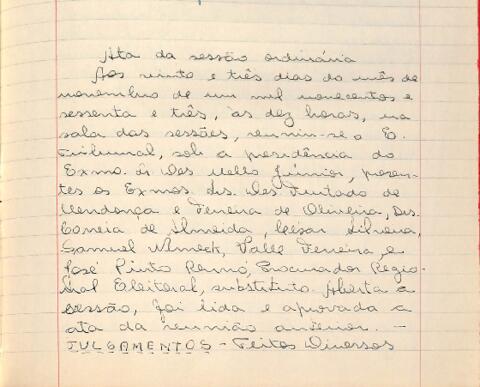 Ata da sessão ordinária
Aos vinte e três dias do mês de
novembro de um mil novecentos e
sessenta e três, às dez horas, na
sala das sessões, reuniu-se o E.
Tribunal, sob a presidência do
Exmo. Sr. Des. Mello Júnior, presen-
tes os Exmos. Srs. Des. Furtado de
Mendonça e Ferreira de Oliveira, Drs.
Correia de Almeida, César Silveira,
Samuel Valle Ferreira, e
José Pinto Renno, Procurador Regio-
nal Eleitoral, substituto. Aberta a
sessão, foi lida e aprovada a
ata da reunião anterior. -
JULGAMENTOS - Feitos Diversos